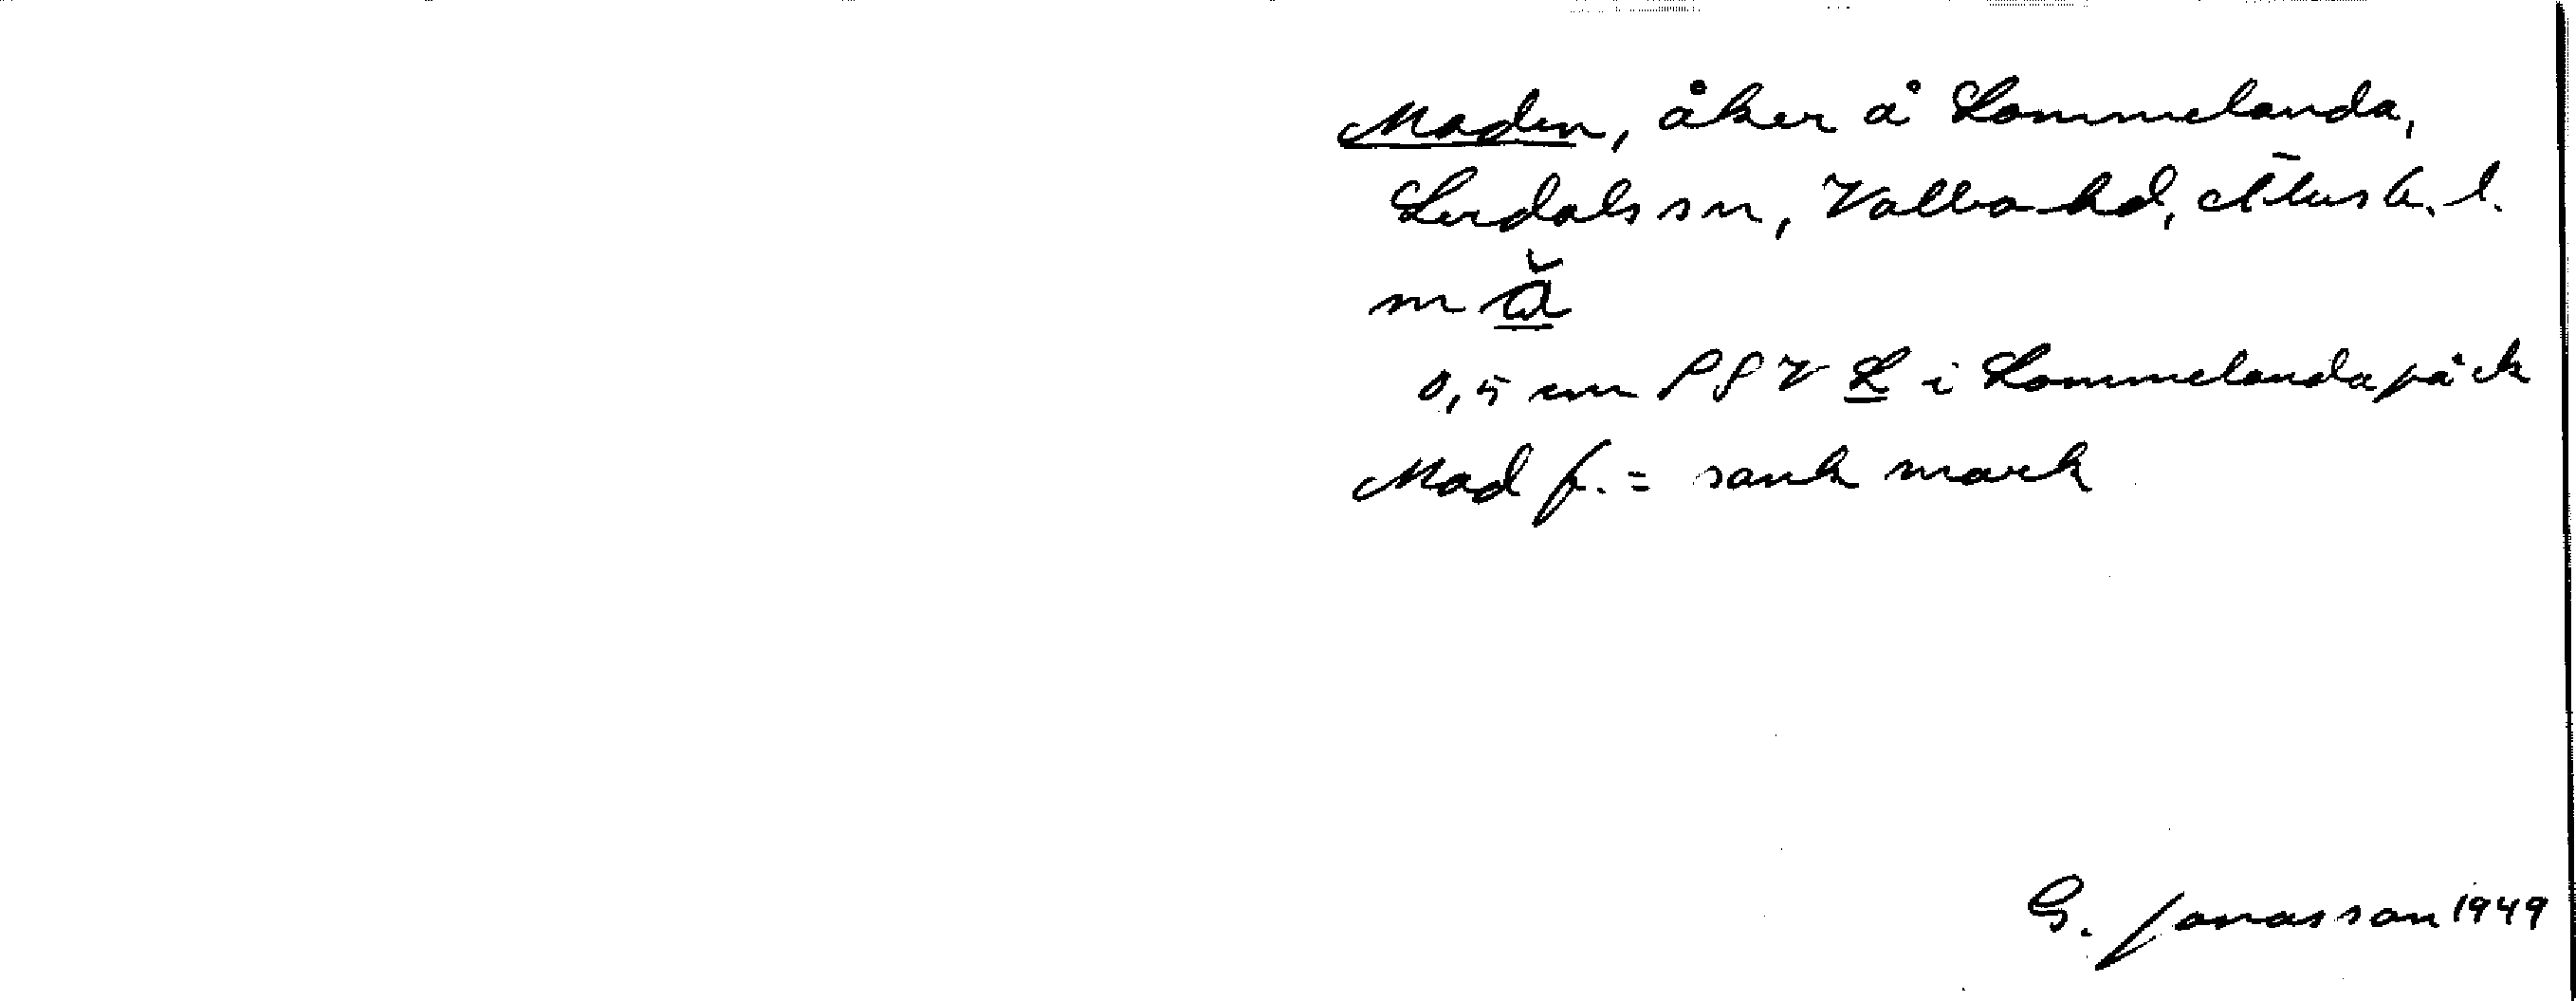 Maden, åker å Lommelanda,
Lerdals sn, Valbo hd, Älvsb. l.
mǎ
0,5 cm SSV L i Lommelanda på ek
Mad f. = sank mark
G. Jonasson 1949